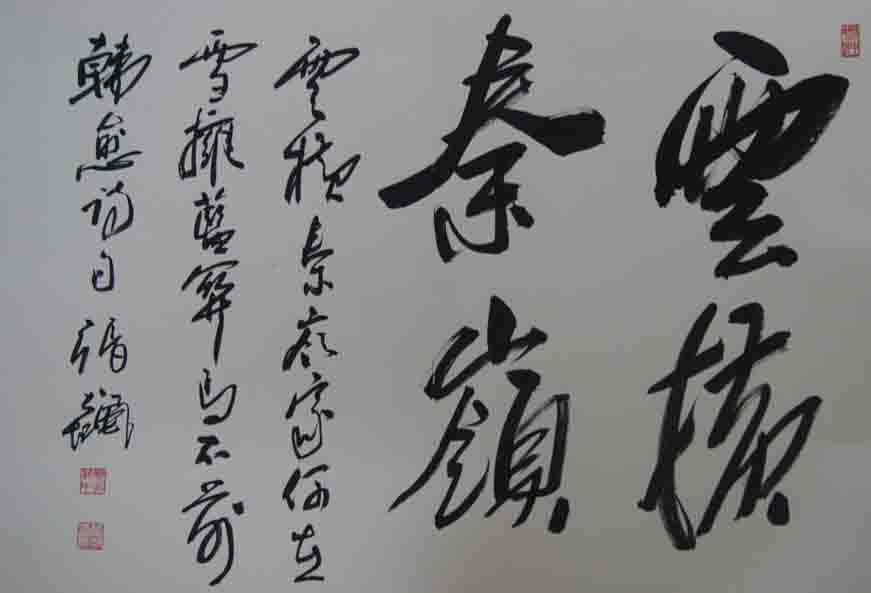 雲橫
秦嶺
雲橫秦嶺家何在
雪擁藍關馬不前
韓愈詩句 張